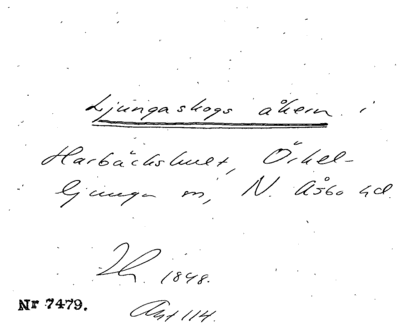 Ljungaskogs åkern i
Harbäckshult, Örkel-
ljunga sn, N. Åsbo hd.
1848.
Nr 7479.
Akt 114.